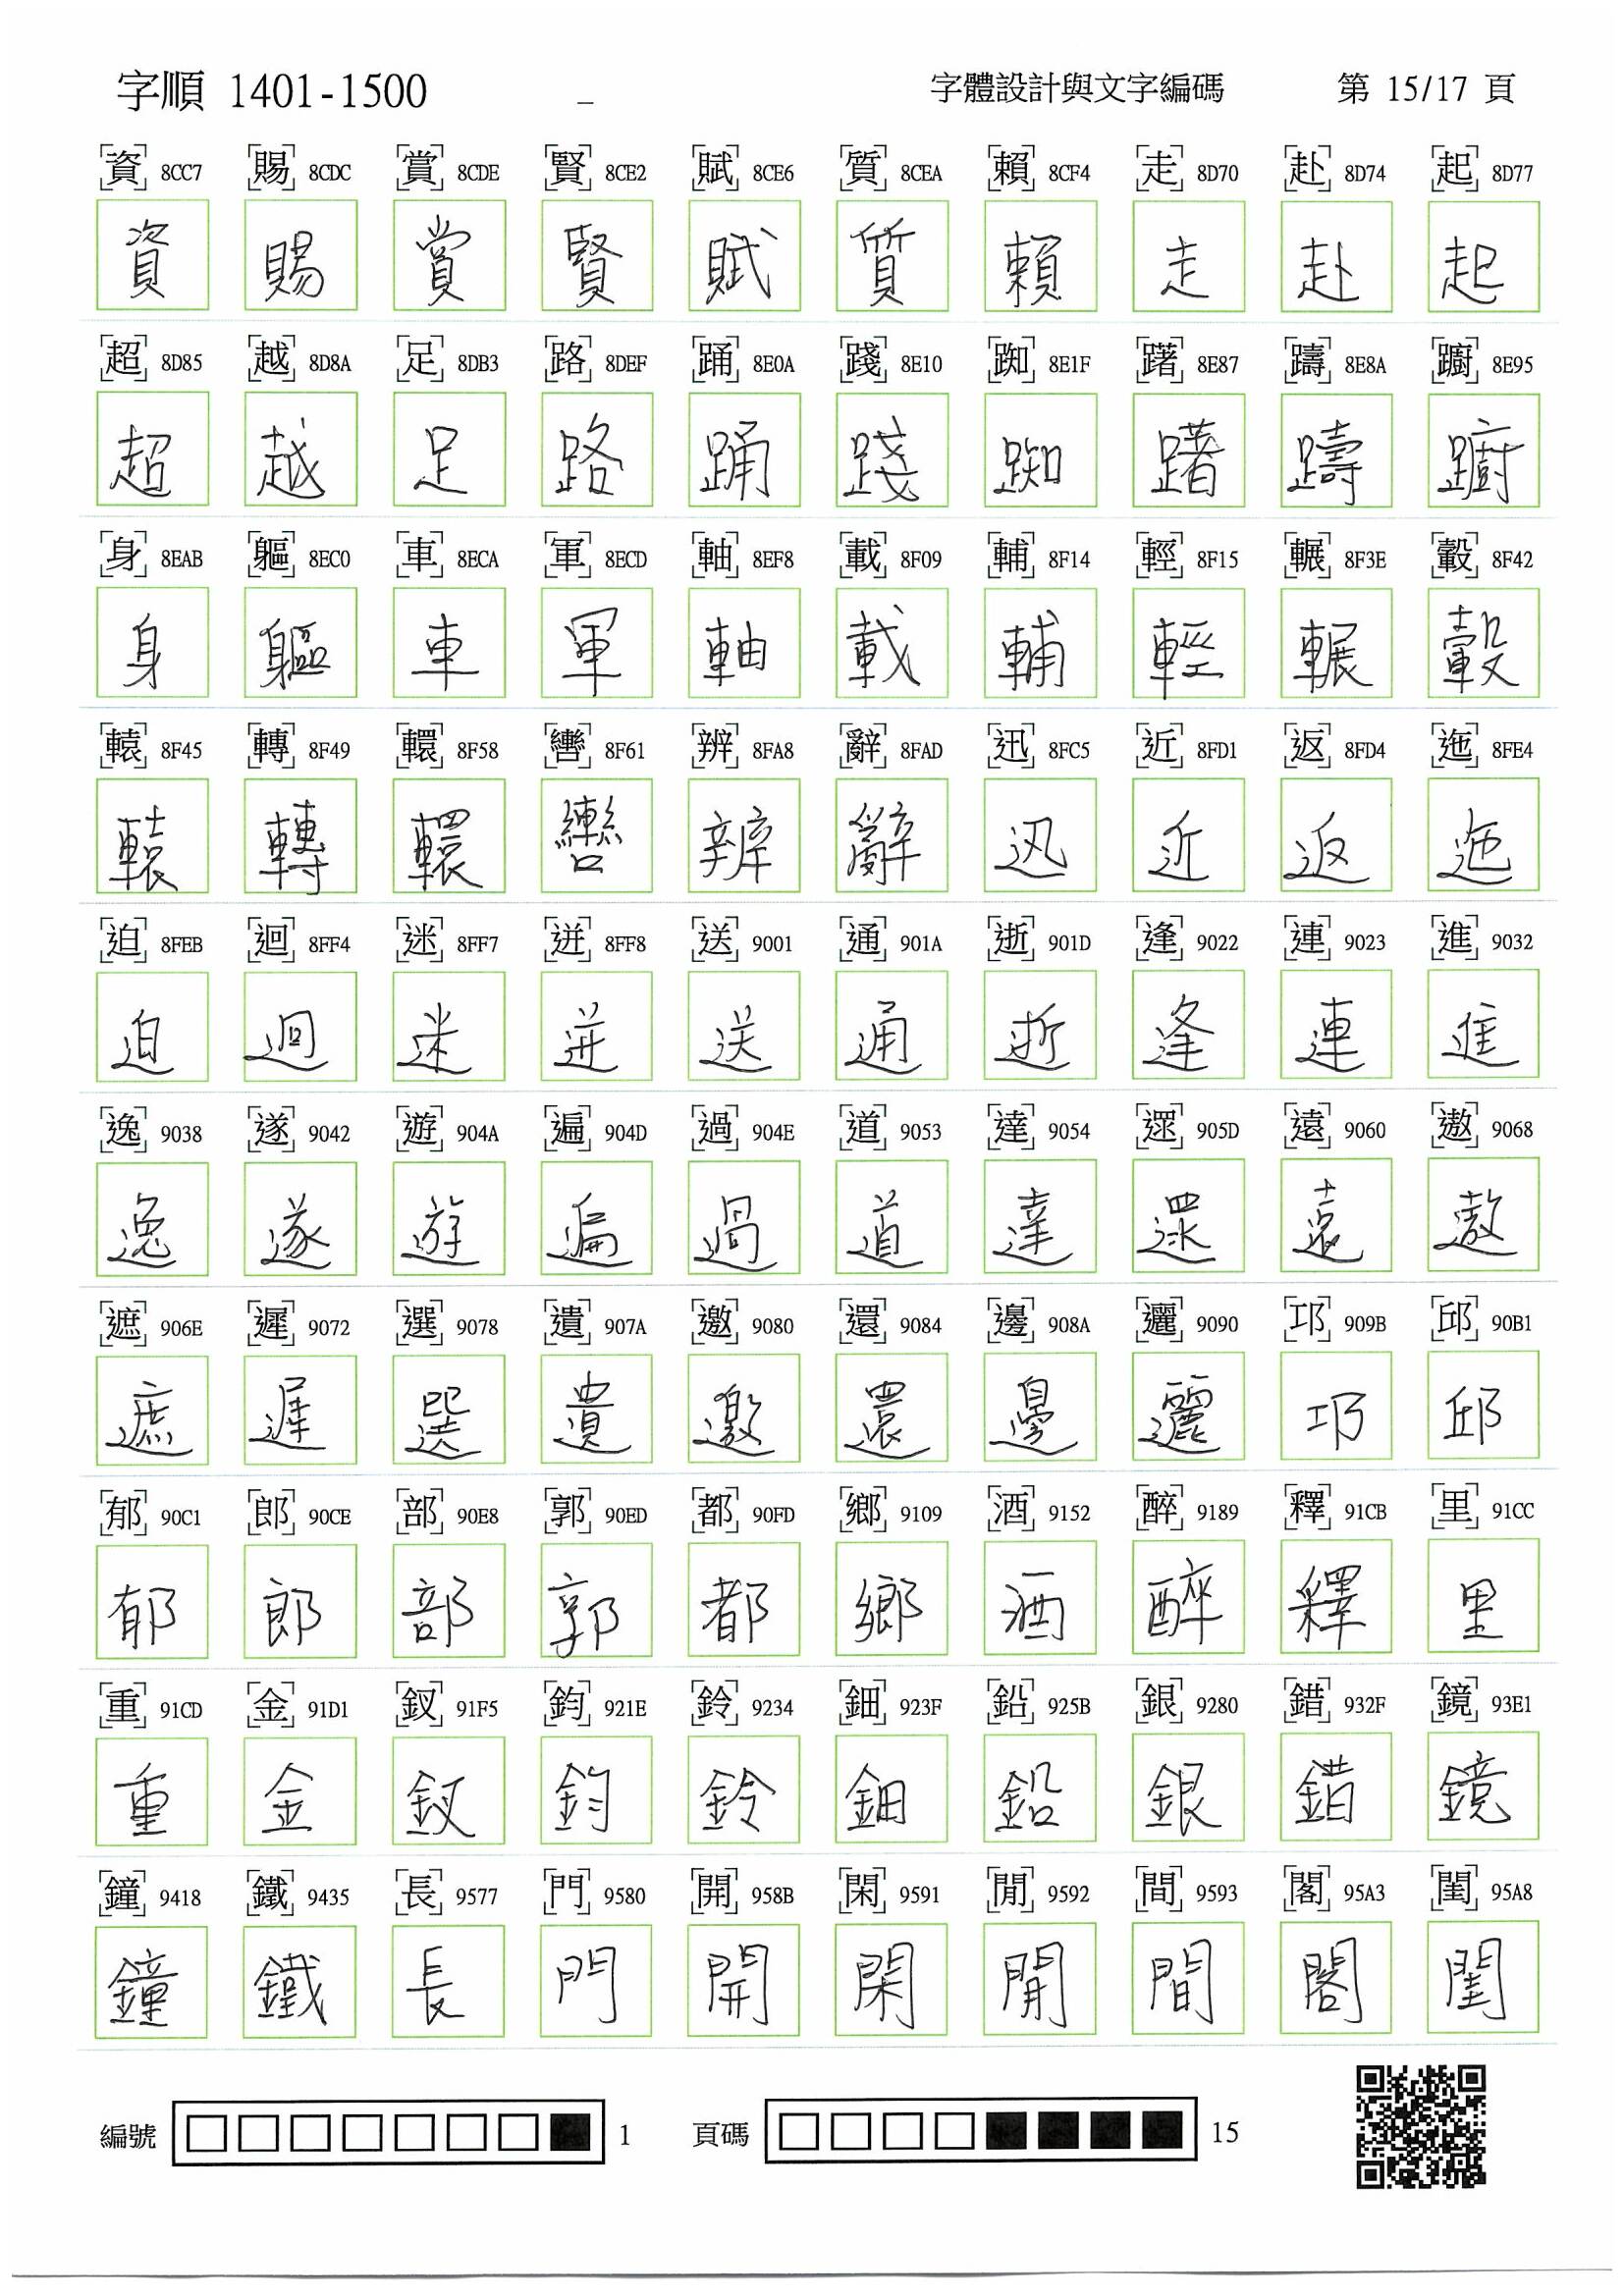 字順 1401-1500 _ 字體設計與文字編碼 第 15/17 頁
資 8CC7 賜 8CDC 賞 8CDE 賢 8CE2 賦 8CE6 質 8CEA 賴 8CF4 走 8D70 赴 8D74 起 8D77
資 賜 賞 賢 賦 質 賴 走 赴 起
超 8D85 越 8D8A 足 8DB3 路 8DEF 踊 8E0A 踐 8E10 踟 8E1F 躇 8E87 躊 8E8A 躕 8E95
超 越 足 路 踊 踐 踟 躇 躊 躕
身 8EAB 軀 8EC0 車 8ECA 軍 8ECD 軸 8EF8 載 8F09 輔 8F14 輕 8F15 輾 8F3E 轂 8F42
身 軀 車 軍 軸 載 輔 輕 輾 轂
轅 8F45 轉 8F49 轘 8F58 轡 8F61 辨 8FA8 辭 8FAD 迅 8FC5 近 8FD1 返 8FD4 迤 8FE4
轅 轉 轘 轡 辨 辭 迅 近 返 迤
迫 8FEB 迴 8FF4 迷 8FF7 迸 8FF8 送 9001 通 901A 逝 901D 逢 9022 連 9023 進 9032
迫 迴 迷 迸 送 通 逝 逢 連 進
逸 9038 遂 9042 遊 904A 遍 904D 過 904E 道 9053 達 9054 遝 905D 遠 9060 遨 9068
逸 遂 遊 遍 過 道 達 遝 遠 遨
遮 906E 遲 9072 選 9078 遺 907A 邀 9080 還 9084 邊 908A 邐 9090 邛 909B 邱 90B1
遮 遲 選 遺 邀 還 邊 邐 邛 邱
郁 90C1 郎 90CE 部 90E8 郭 90ED 都 90FD 鄉 9109 酒 9152 醉 9189 釋 91CB 里 91CC
郁 郎 部 郭 都 鄉 酒 醉 釋 里
重 91CD 金 91D1 釵 91F5 鈞 921E 鈴 9234 鈿 923F 鉛 925B 銀 9280 錯 932F 鏡 93E1
重 金 釵 鈞 鈴 鈿 鉛 銀 錯 鏡
鐘 9418 鐵 9435 長 9577 門 9580 開 958B 閑 9591 閒 9592 間 9593 閣 95A3 閨 95A8
鐘 鐵 長 門 開 閑 閒 間 閣 閨
編號 1 頁碼 15